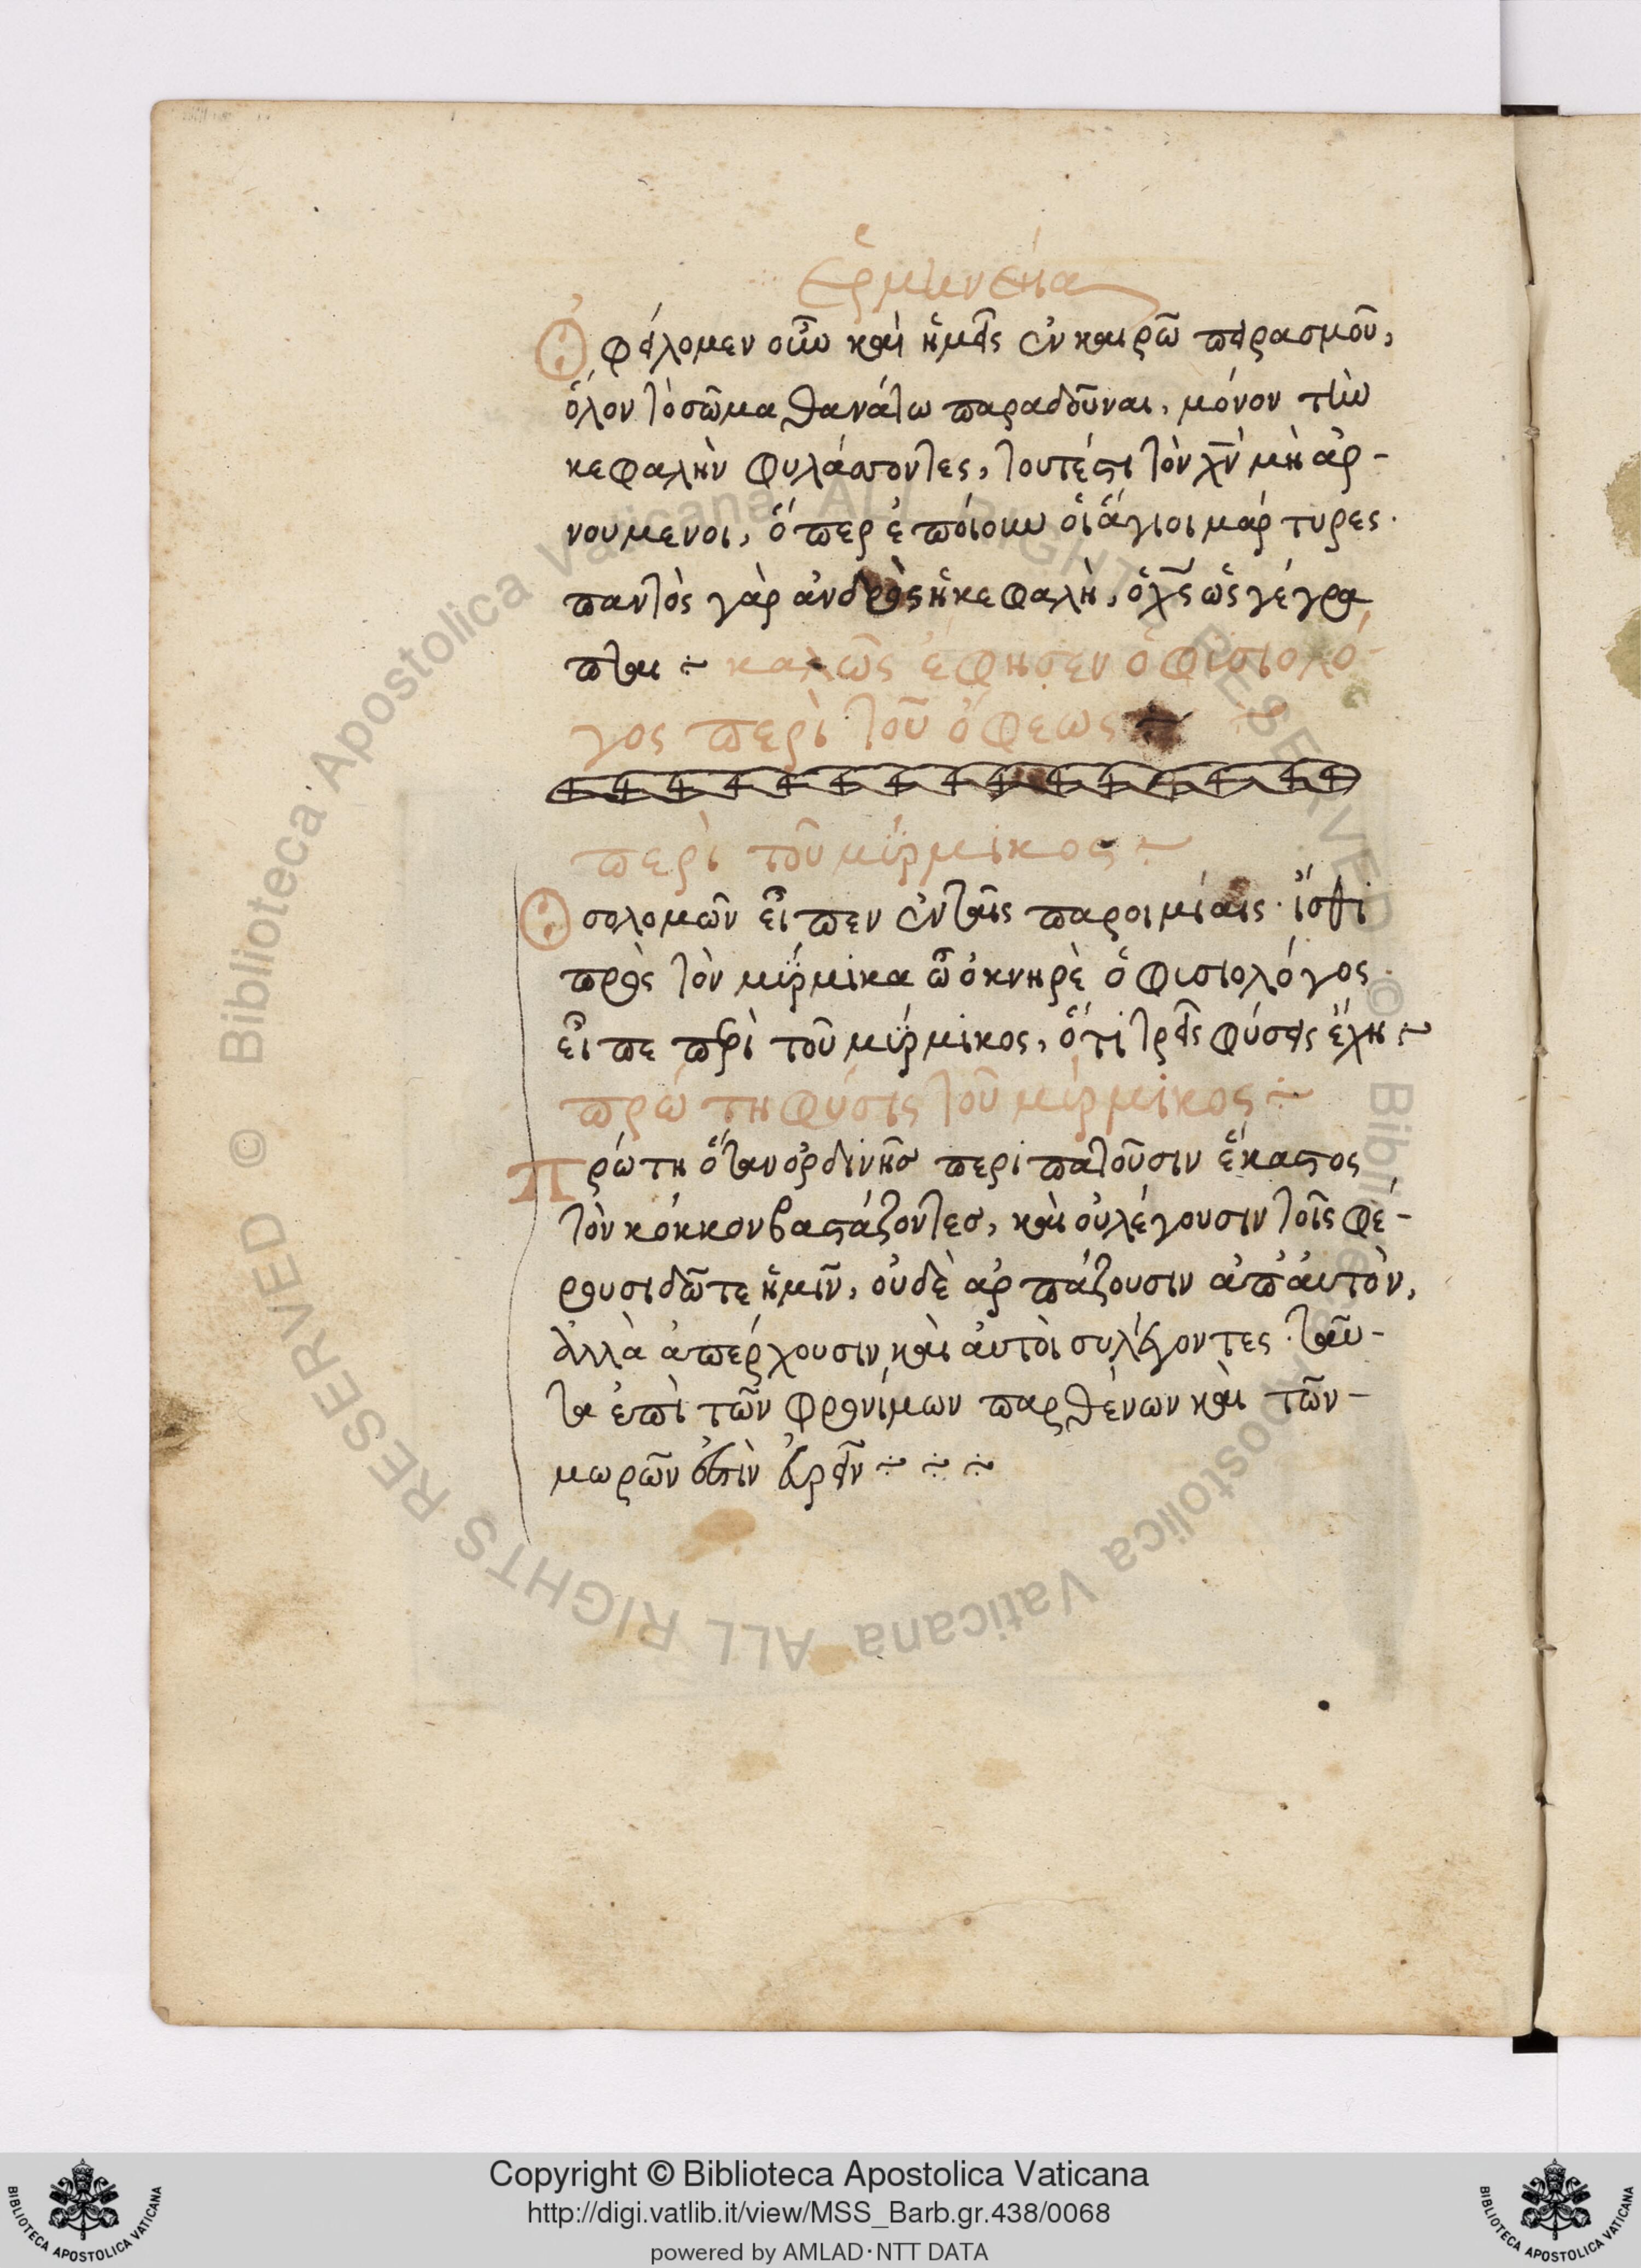 Ἑρμηνεία
Ὀφείλομεν οὖν καὶ ἡμεῖς ἐν καιρῶ πειρασμοῦ,
ὅλον τὸ σῶμα θανάτω παραδοῦναι, μόνον τὴν
κεφαλὴν φυλάττοντες, τουτέστι τὸν χν̄ μὴ ἀρ-
νουμενοι, ὅπερ ἐποίουν οἱ ἅγιοι μάρτυρες.
παντὸς γὰρ ἀνδρὸς ἡ κεφαλὴ, ὁ χς̄ ὡς γέγρα
πται ~ καλῶς ἔφησεν ὁ φισιολό-
γος περὶ τοῦ ὄφεως ~
περὶ τοῦ μύρμικος ~
Ὁ σολομῶν εἶπεν ἐν ταῖς παροιμίαις. ἴσθι
πρὸς τὸν μύρμικα ὦ ὀκνηρὲ ὁ φισιολόγος
εἶπε περὶ τοῦ μύρμικος, ὅτι τρεῖς φύσεις ἔχη ~
πρώτη φύσις τοῦ μύρμικος ~
Πρώτη ὅταν περιπατοῦσιν ἕκαστος
τὸν κόκκον βαστάζοντες, καὶ οὐ λέγουσιν τοῖς φέ-
ρουσι δῶτε ἡμῖν, οὐδὲ ἁρπάζουσιν ἀπ' αυτὸν,
ἀλλὰ ἀπέρχουσιν καὶ ἀυτοὶ συλέγοντες. ταῦ-
τα ἐπὶ τῶν φρονίμων παρθένων καὶ τῶν-
μωρῶν ἐστὶν εὑρεῖν ~ ~ ~
© Biblioteca Apostolica Vaticana ALL RIGHTS RESERVED
© Biblioteca Apostolica Vaticana ALL RIGHTS RESERVED
Copyright © Biblioteca Apostolica Vaticana
http://digi.vatlib.it/view/MSS_Barb.gr.438/0068
powered by AMLAD·NTT DATA
BIBLIOTECA APOSTOLICA VATICANA
BIBLIOTECA APOSTOLICA VATICANA